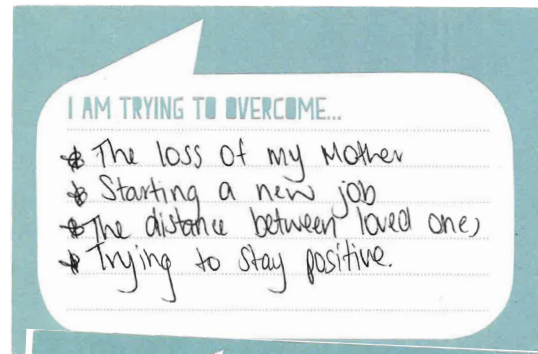 I AM TRYING TO OVERCOME...
* The loss of my Mother
* Starting a new job
* The distance between loved ones
* Trying to stay positive.